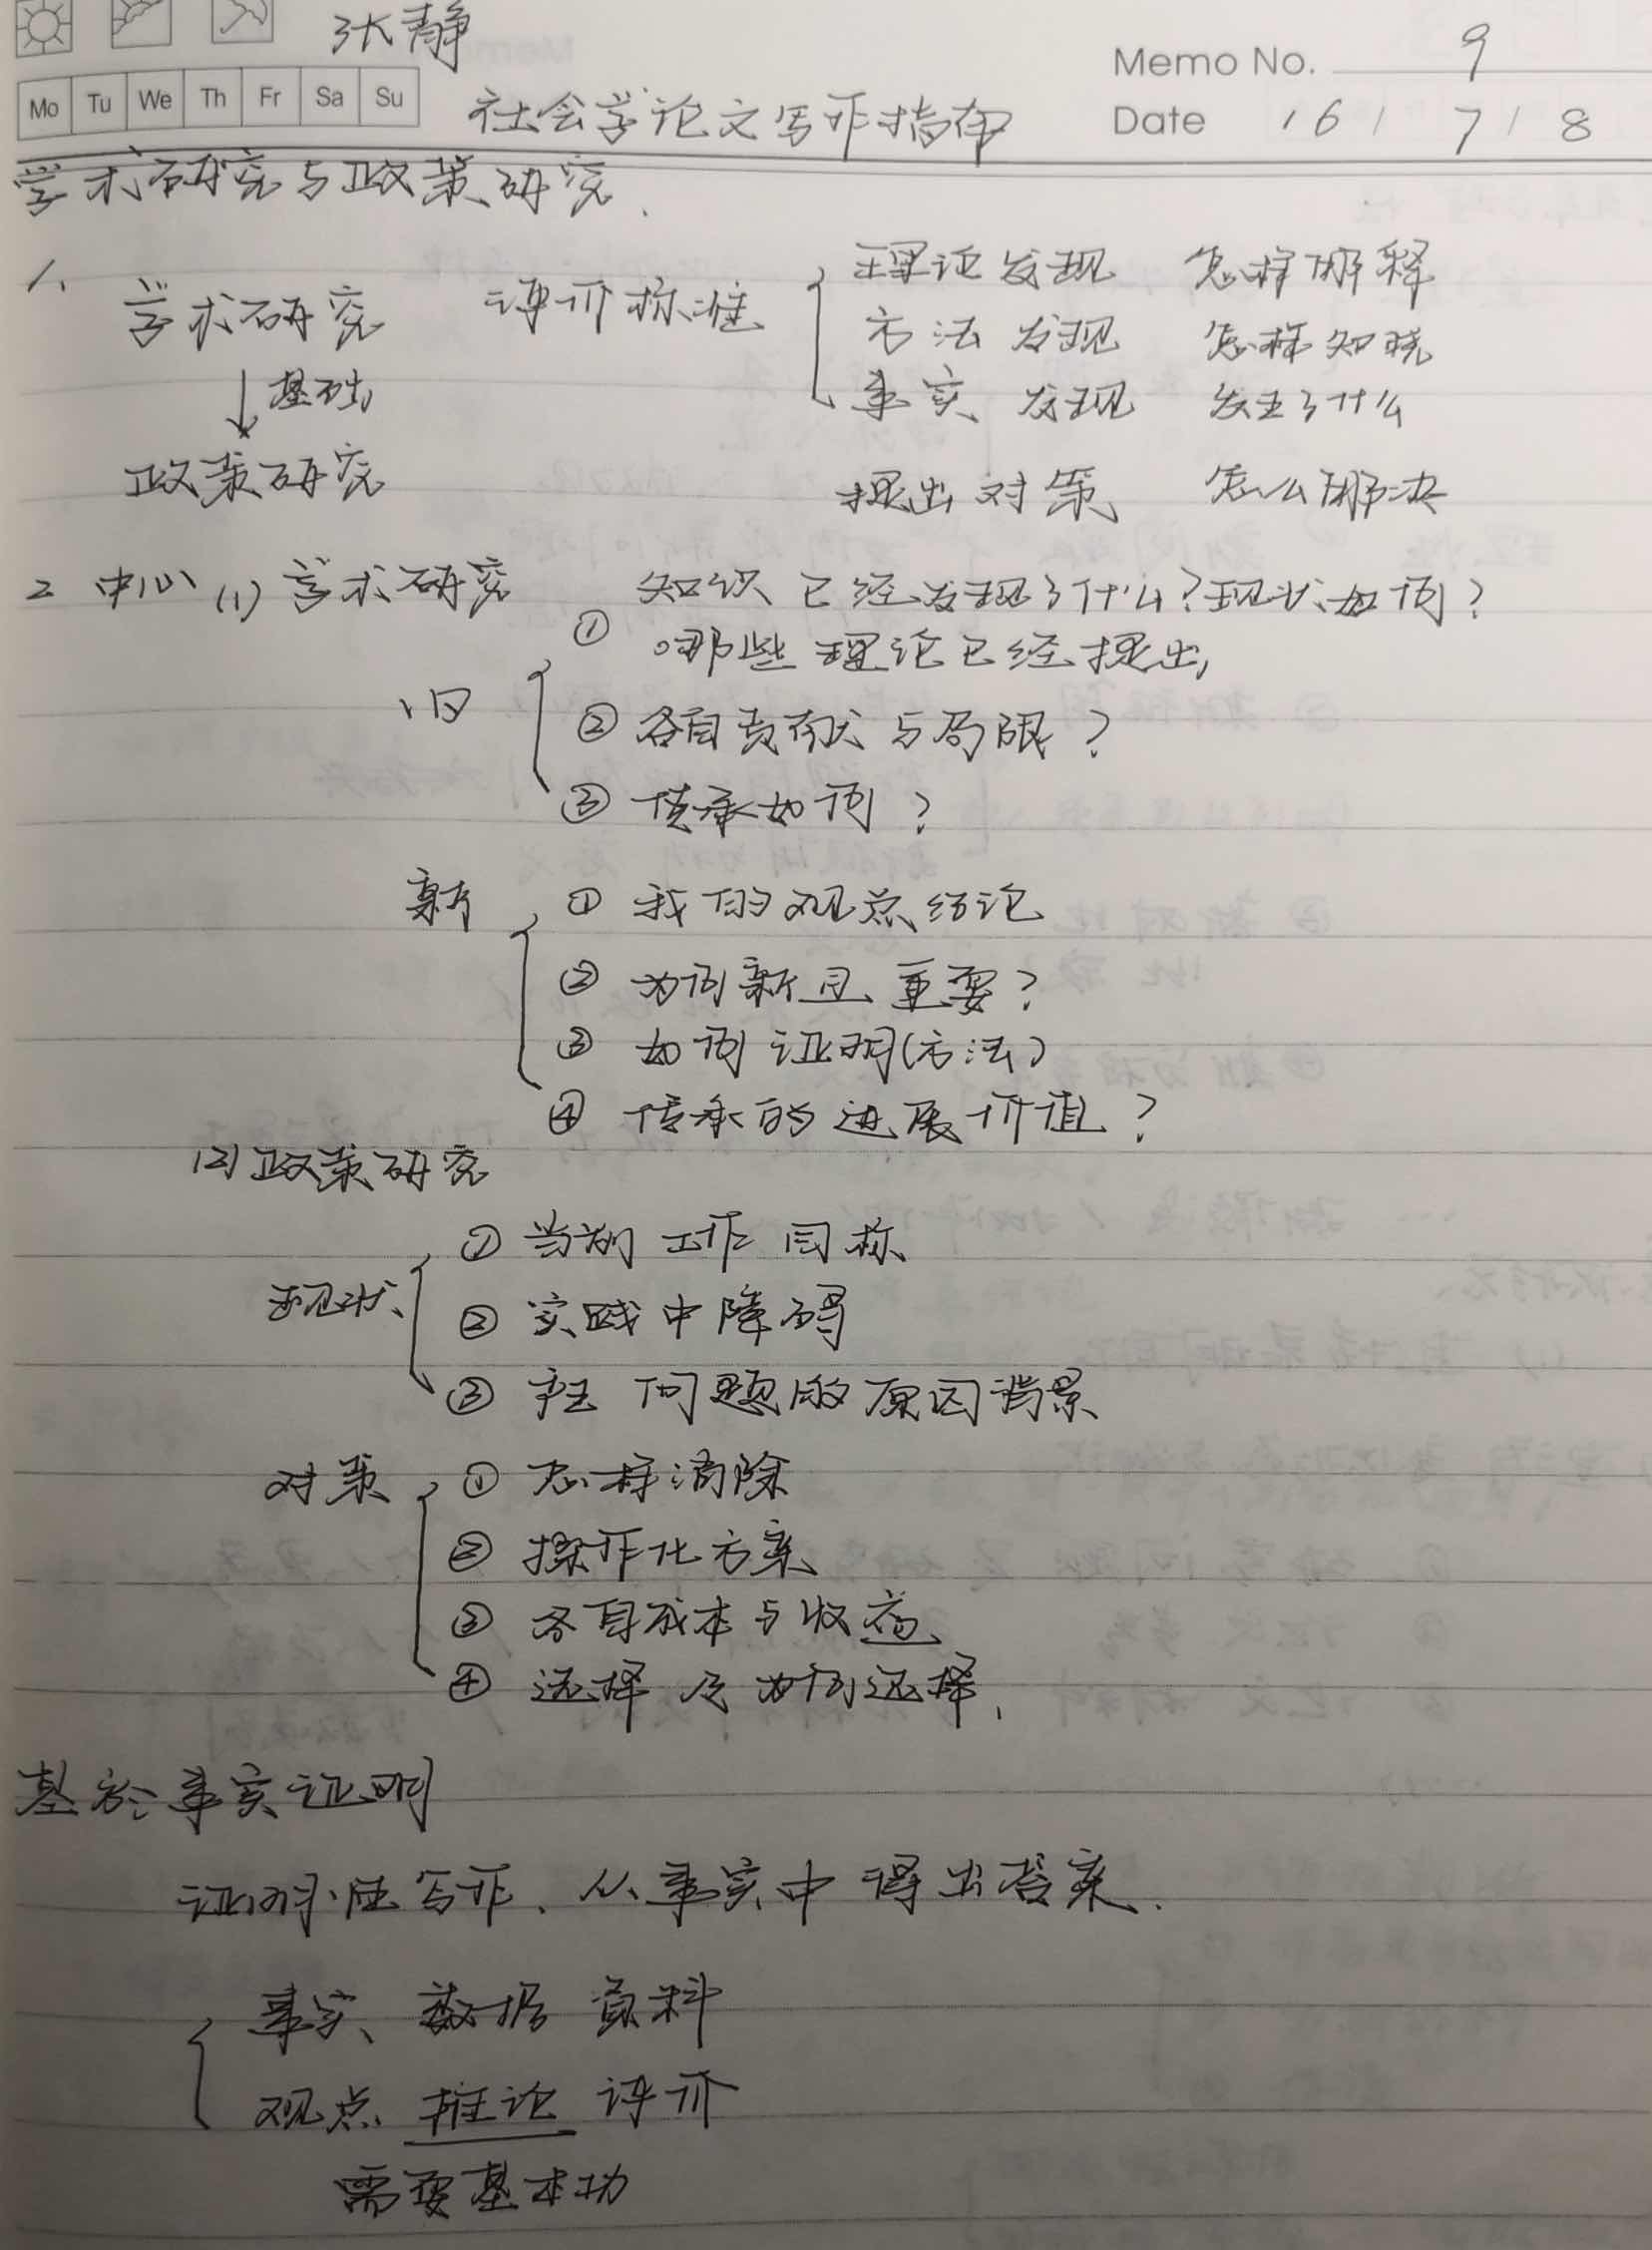 张静
Memo No. 9
Mo Tu We Th Fr Sa Su
社会学论文写作指南
Date 16 / 7 / 8
学术研究与政策研究.
1、
学术研究 评价标准 理论发现 怎样解释
方法发现 怎样知晓
↓基础 事实发现 发生了什么
政策研究 提出对策 怎么解决
2 中心 (1) 学术研究 ① 知识 已经发现了什么?现状如何?
哪些理论已经提出,
旧 ② 各自贡献与局限?
③ 传承如何?
新 ① 我的观点结论
② 为何新且重要?
③ 如何证明(方法)
④ 传承的进展价值?
(2) 政策研究
① 当前工作目标
现状 ② 实践中障碍
③ 产生问题的原因背景
对策 ① 怎样消除
② 操作化方案
③ 各自成本与收益
④ 选择及为何选择.
基於事实证明
证明性写作. 从事实中得出答案.
事实 数据 资料
观点 推论 评价
需要基本功